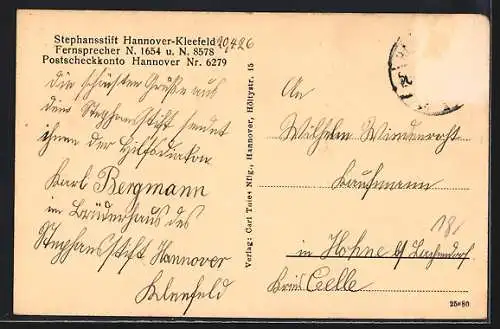 Stephansstift Hannover-Kleefeld 20.4.26
Fernsprecher N. 1654 u. N. 8578
Postscheckkonto Hannover Nr. 6279
die schönsten Grüße aus
dem Stephansstift sendet
ihnen der Hilfsdiakon
Karl Bergmann
im Brüderhaus des
Stephansstift Hannover
Kleefeld
Verlag: Carl Thies Nflg., Hannover, Höltystr. 15
An
Wilhelm
Kaufmann
18.
in Hohne b/
Kreis Celle
25*80